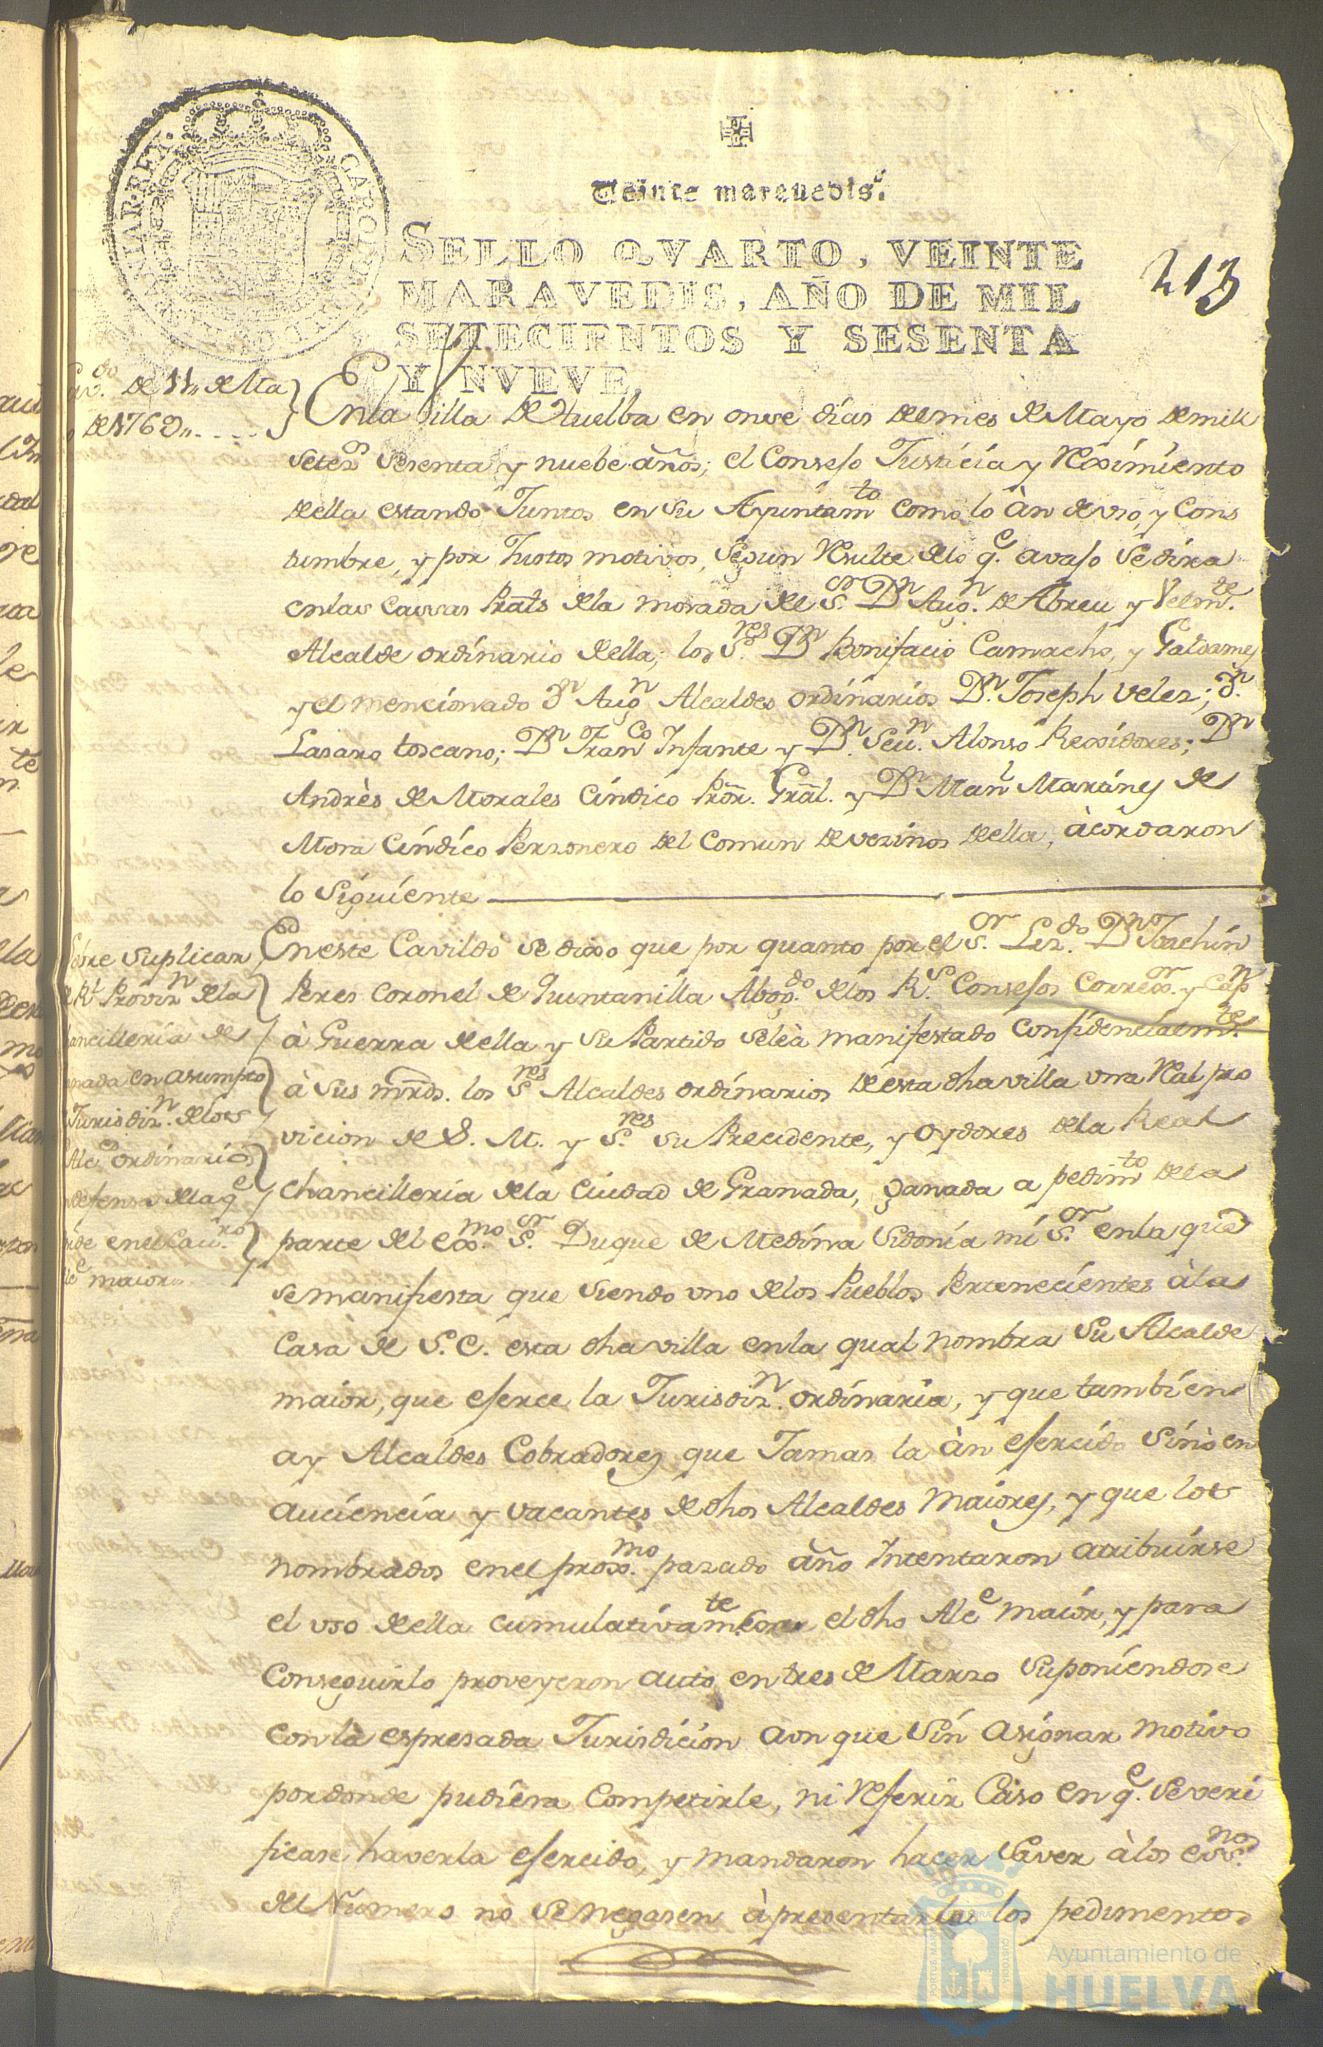 Veinte maravedis.
SELLO QVARTO, VEINTE
MARAVEDIS, AÑO DE MIL
SETECIENTOS Y SESENTA
Y NVEVE.
213
CAROLUS III
HISPANIAR. REX.
de 11,, de Ma
de 1769,,
En la Villa de Huelba en onse dias del mes de Mayo de mill
setez.os sesenta y nuebe años; el Conseso Justicia y Reximiento
della estando Juntos en su Ayuntam.to como lo àn de vso, y Cons
tumbre, y por Justos motivos, segun Resulte delo q.e avaso se dira
en las Cassas Prāts. de la morada del S.or D.n Aug.n de Abreu y Velm.te
Alcalde ordinario della; los S.res D.n Bonifacio Camacho, y Galdamez
y el mencionado D.n Aug.n Alcaldes ordinarios D.n Joseph Velez; D.n
Lasaro toscano; D.n Fran.co Infante y D.n Seu.n Alonso Rexidores; D.n
Andrès de Morales Cindico Prōr. Grāl. y D.n Man.l Martinez de
Mora Cindico Perzonero del Comun de vezinos della, àcordaron
lo siguiente
Sobre suplicar
R.l Proviz.n de la
chancilleria de
Granada en asumpto
Jurisdiz.n de los
Alc.es ordinarios
defensa de la q.e
maior
En este Cavildo se dixo que por quanto por el S.or Liz.do D.n Joachin
Peres Coronel de Quintanilla Abog.do de los R.s Consesos Correx.or y Cap.n
à Guerra della y su Partido se leà manifestado Confidencialem.te
à sus mrds. los S.res Alcaldes ordinarios de esta dha villa vna Real pro
vicion de S. M. y S.res su Precidente, y oydores de la Real
Chancilleria dela Ciudad de Granada, ganada a pedim.to de la
parte del Exmo. S.or Duque de Medina Sidonia mi S.or en la que
se manifiesta que siendo vno de los Pueblos Pertenecientes àla
Casa de S. E. esta dha villa en la qual nombra su Alcalde
maior, que eserce la Jurisdiz.n ordinaria, y que tambien
ay Alcaldes Cobradores que Jamas la àn esercido sino en
auciencia y vacantes de dhos Alcaldes Maiores, y que los
nombrados en el prox.mo pazado año Intentaron atribuirse
el vso della cumulativam.te con el dho Alc.e maior, y para
Conseguirlo proveyeron auto en tres de Marzo suponiendose
con la espresada Jurisdicion aon que sin asignar motivo
por donde pudiera Competirle, ni Referir Caso en q.e se veri
ficase haverla esercido, y mandaron hacer saver à los Ess.nos
del Numero no se negasen à presentarlas los pedimentos
Ayuntamiento de
HUELVA